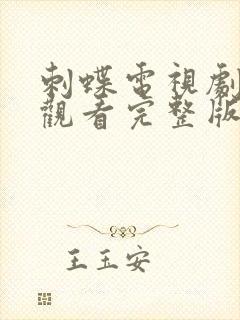 刺蝶電視劇
觀看完整版
王玉安